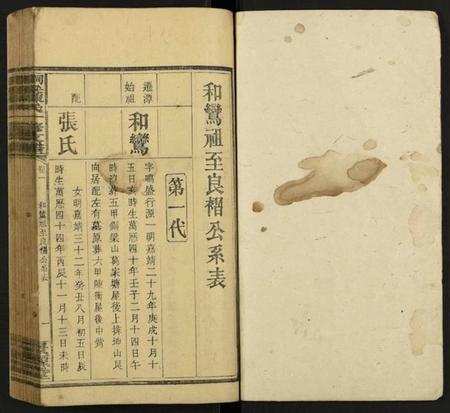 和鸞祖至良褶公系表
第一代
遷潭
始祖
和鸞
字鳴盛行源一明嘉靖二十九年庚戌十月十
五日亥時生萬曆四十年壬子二月十四日午
時五甲銅梁山葛家塘屋後上排坤山艮
向居配左有墓原葬六甲陳衝屋後中嘴
配
張氏
女明嘉靖三十二年癸丑八月初五日辰
時生萬曆四十四年丙辰十一月十三日未時
和鸞祖至良褶公系表
一